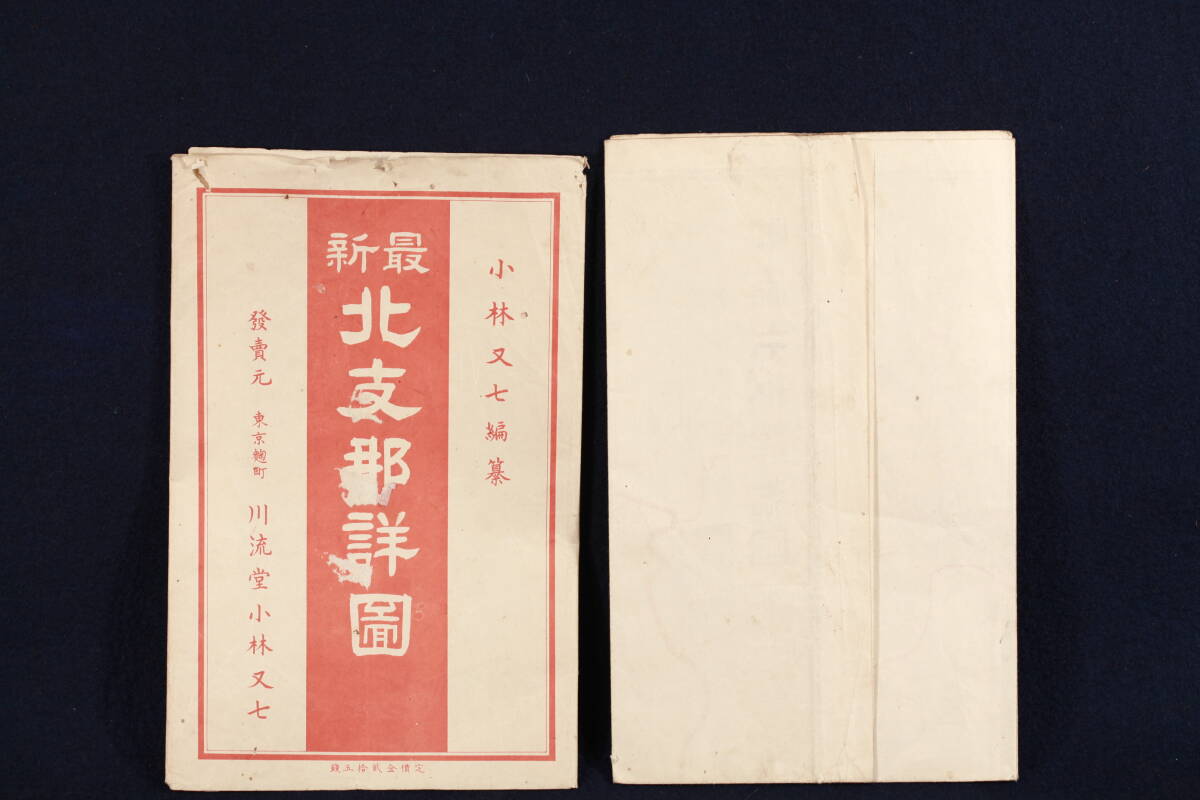 小林又七編纂
最新
北支那詳圖
發賣元 東京麹町 川流堂小林又七
定價金貳拾五錢